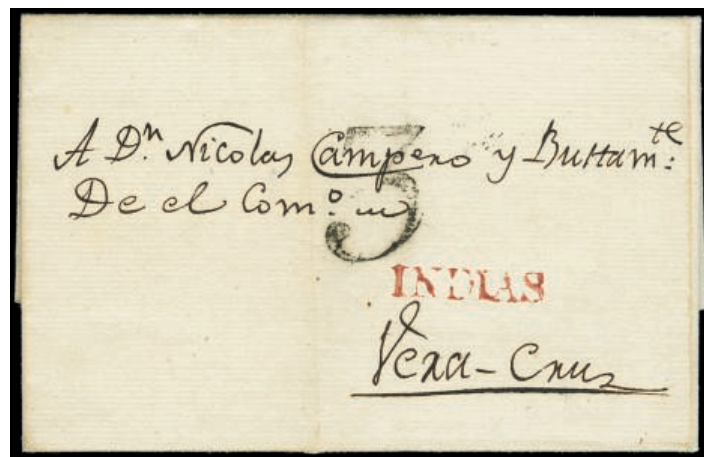 A Dⁿ. Nicolas Campero y Bustamᵗᵉ:
De el Comº. en
3
INDIAS
Vera-Cruz